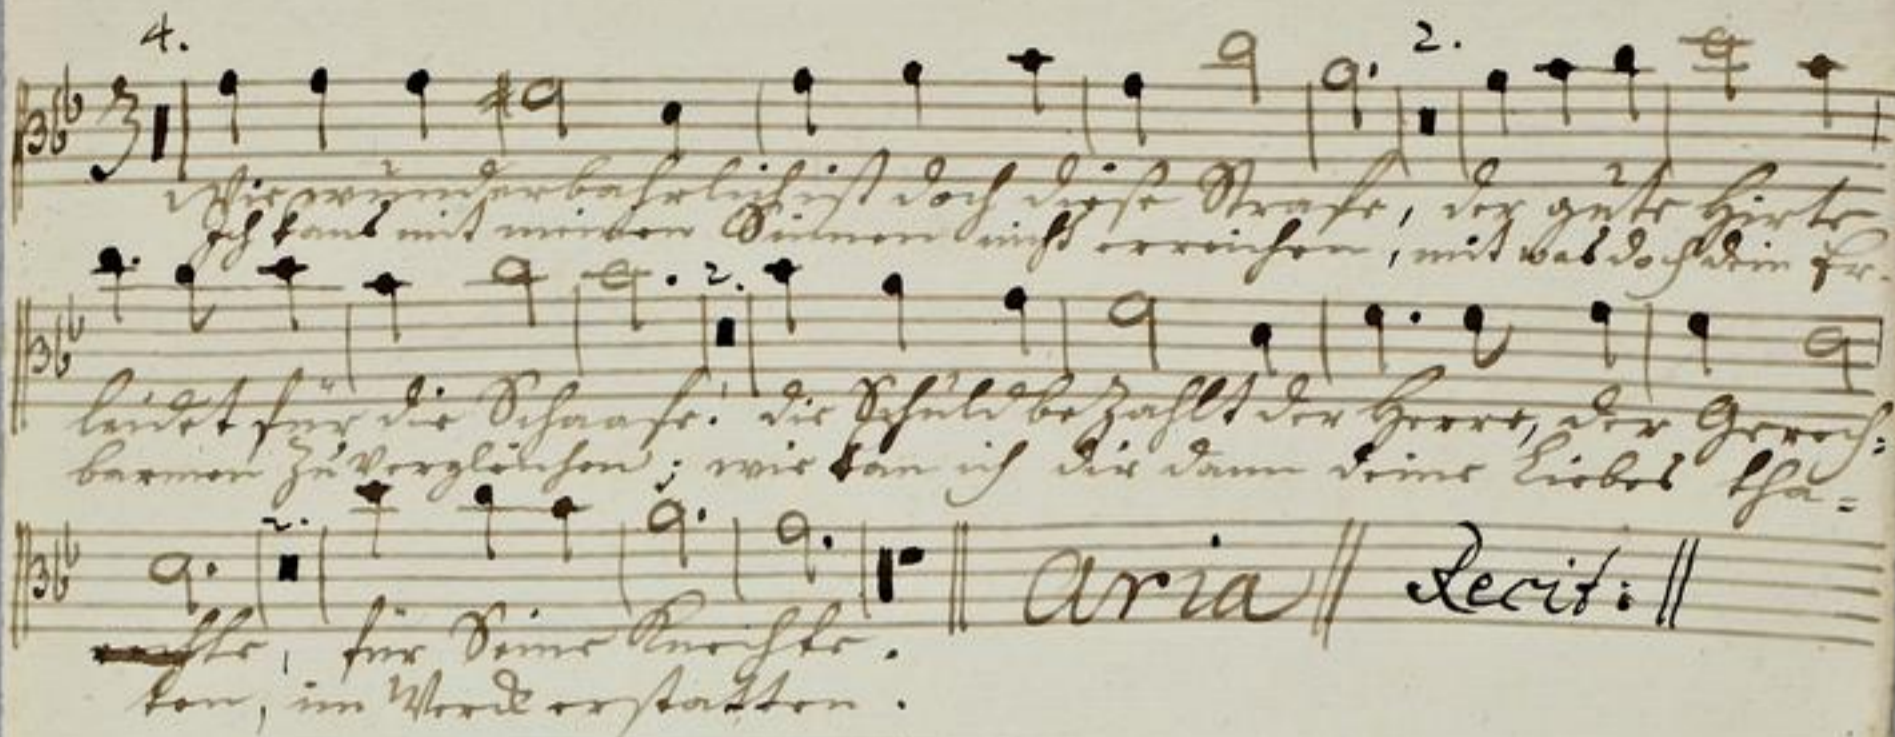 4. 2.
Wie wunderbahrlich ist doch diese Strafe, der gute Hirte
Ich kans mit meinen Sinnen nicht erreichen, mit was doch dein Er-
2.
leidet für die Schaafe! die Schuld bezahlt der Herre, der Gerech=
barmen zu vergleichen; wie kan ich dir dann deine Liebes tha=
2.
aria Recit:
chte, für Seine Knechte.
ten, im Werck erstatten.